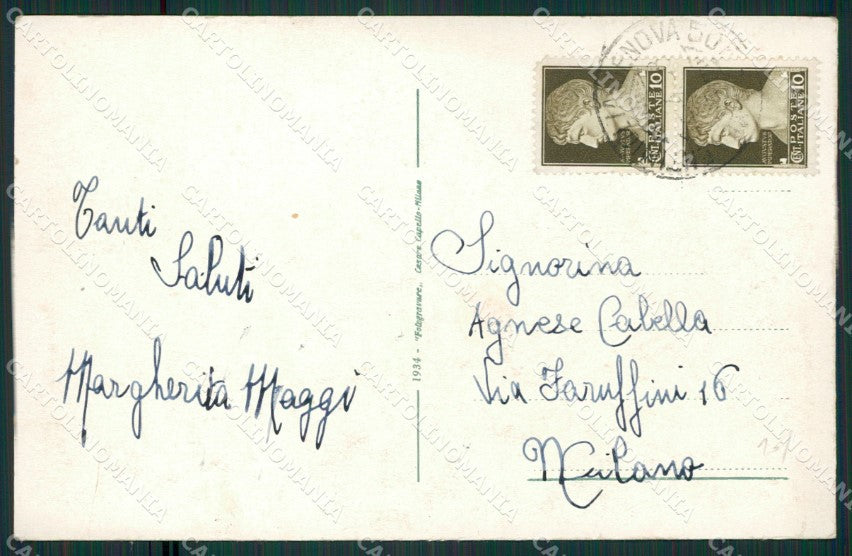 Tanti
Saluti
Margherita Maggi
1934 - "Fotogravure„ Cesare Capello-Milano
GENOVA
10
POSTE
ITALIANE
CENT
10
POSTE
ITALIANE
CENT
Signorina
Agnese Cabella
Via Faruffini 16
Milano
CARTOLINOMANIA